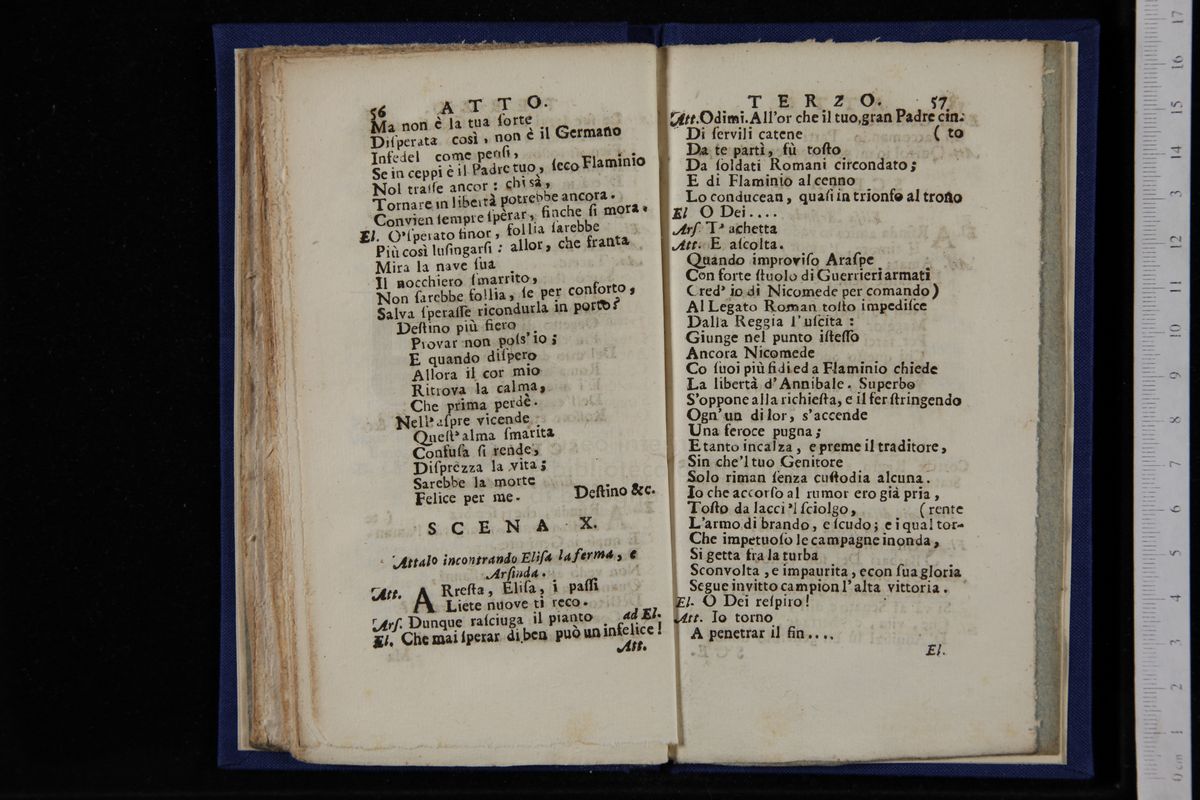 56 ATTO.
Ma non è la tua ſorte
Diſperata così, non è il Germano
Infedel come penſi,
Se in ceppi è il Padre tuo, ſeco Flaminio
Nol traſſe ancor: chi sà,
Tornare in libertà potrebbe ancora.
Convien ſempre ſperar, finche ſi mora.
El. O'ſperato finor, follia ſarebbe
Più così luſingarſi: allor, che franta
Mira la nave ſua
Il nocchiero ſmarrito,
Non ſarebbe follia, ſe per conforto,
Salva ſperaſſe ricondurla in porto?
Deſtino più fiero
Provar non poſs'io;
E quando diſpero
Allora il cor mio
Ritrova la calma,
Che prima perdè.
Nell'aſpre vicende
Queſt'alma ſmarita
Confuſa ſi rende,
Diſprezza la vita;
Sarebbe la morte
Felice per me. Deſtino &c.
SCENA X.
Attalo incontrando Eliſa la ferma, e
Arſinda.
Att. ARreſta, Eliſa, i paſſi
Liete nuove ti reco.
Arſ. Dunque raſciuga il pianto ad El.
El. Che mai ſperar di ben può un infelice!
Att.
TERZO. 57
Att. Odimi. All'or che il tuo gran Padre cin-
Di ſervili catene (to
Da te partì, fù toſto
Da ſoldati Romani circondato;
E di Flaminio al cenno
Lo conducean, quaſi in trionfo al trono
El O Dei....
Arſ. T'achetta
Att. E aſcolta.
Quando improviſo Araſpe
Con forte ſtuolo di Guerrieri armati
(Cred' io di Nicomede per comando)
Al Legato Roman toſto impediſce
Dalla Reggia l'uſcita:
Giunge nel punto iſteſſo
Ancora Nicomede
Co ſuoi più fidi ed a Flaminio chiede
La libertà d'Annibale. Superbo
S'oppone alla richieſta, e il fer ſtringendo
Ogn'un di lor, s'accende
Una feroce pugna;
E tanto incalza, e preme il traditore,
Sin che'l tuo Genitore
Solo riman ſenza cuſtodia alcuna.
Io che accorſo al rumor ero già pria,
Toſto da lacci'l ſciolgo, (rente
L'armo di brando, e ſcudo; e i qual tor-
Che impetuoſo le campagne inonda,
Si getta fra la turba
Sconvolta, e impaurita, e con ſua gloria
Segue invitto campion l'alta vittoria.
El. O Dei reſpiro!
Att. Io torno
A penetrar il fin....
El.